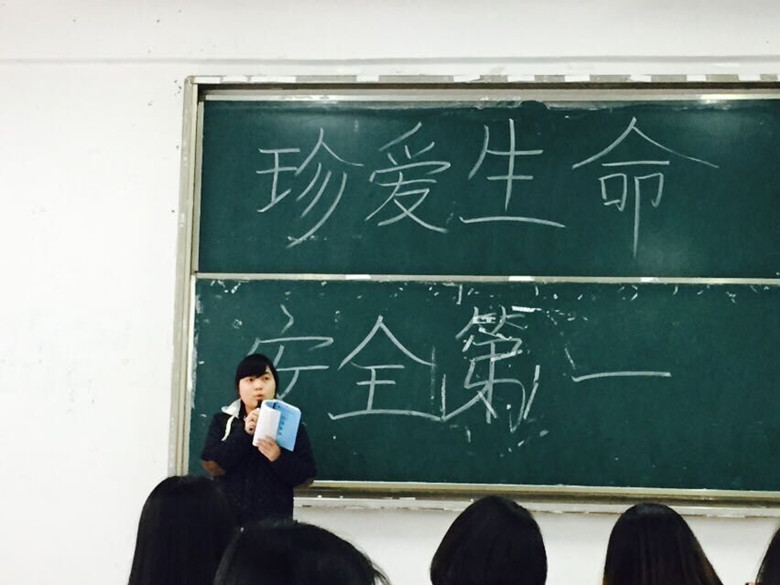 珍爱生命
安全第一